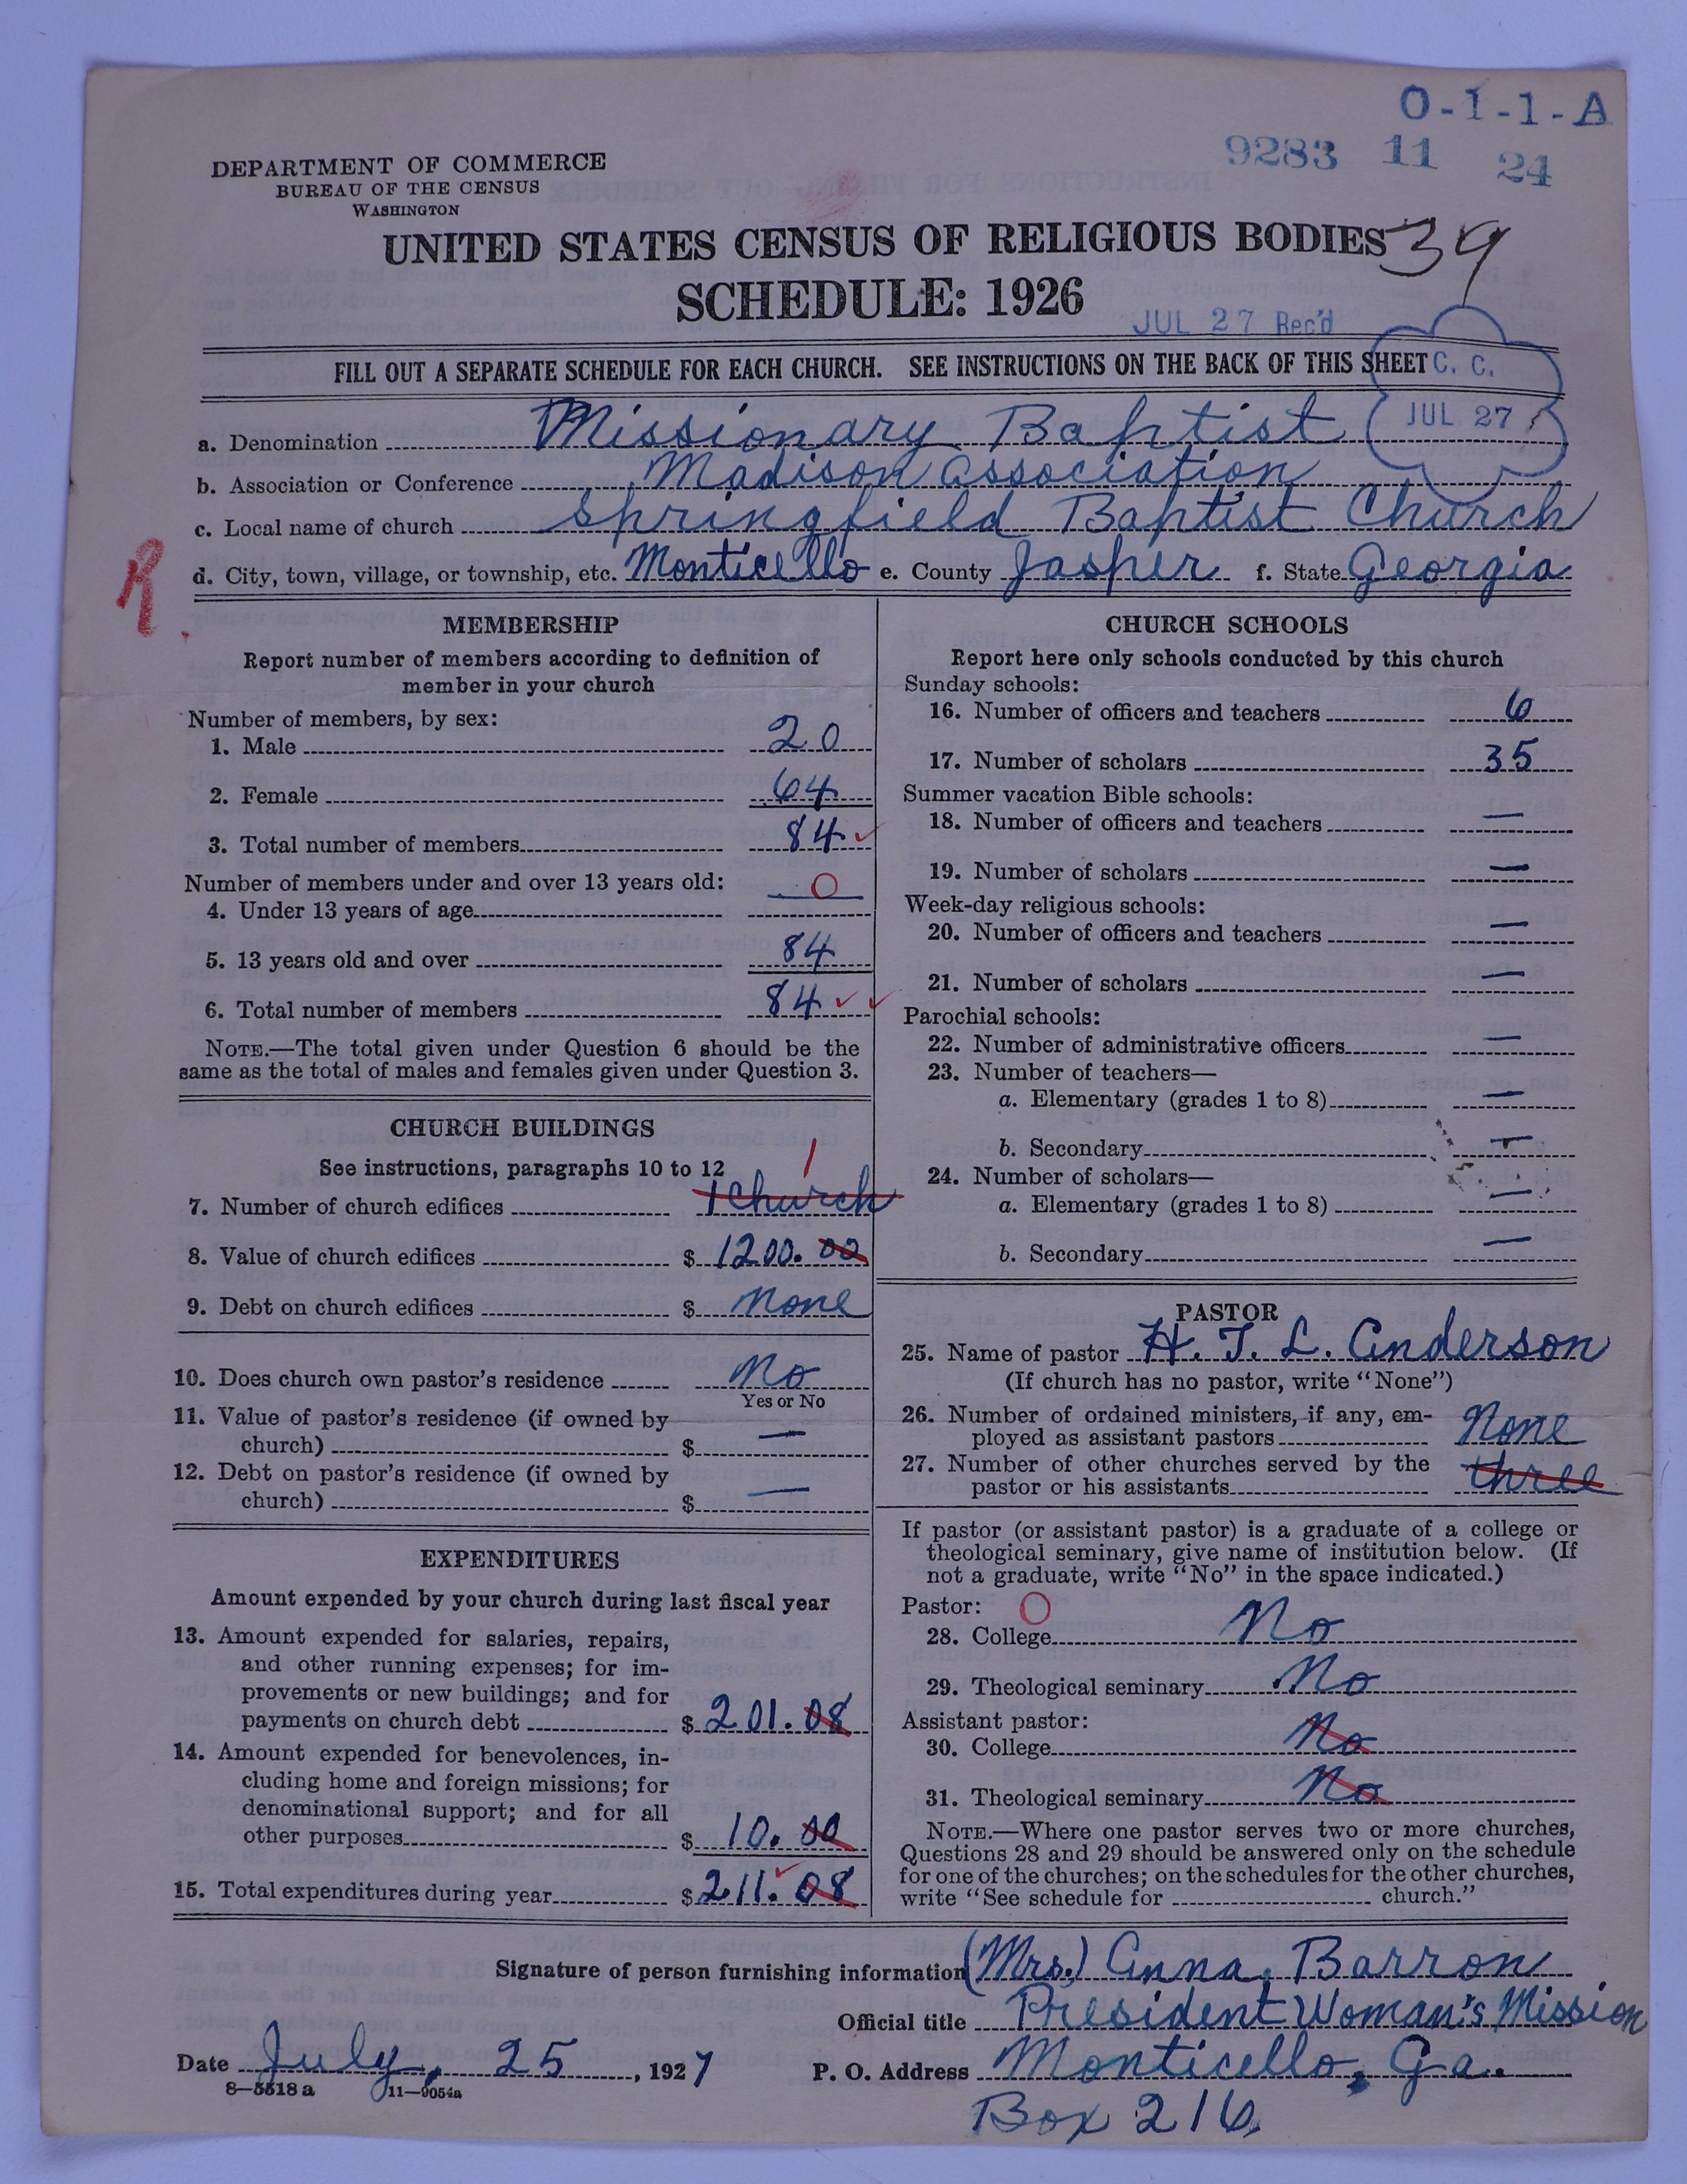 O-1-1-A
9283 11 24
DEPARTMENT OF COMMERCE
BUREAU OF THE CENSUS
WASHINGTON
UNITED STATES CENSUS OF RELIGIOUS BODIES 39
SCHEDULE: 1926
JUL 27 Rec'd
FILL OUT A SEPARATE SCHEDULE FOR EACH CHURCH. SEE INSTRUCTIONS ON THE BACK OF THIS SHEET
C. C.
JUL 27
a. Denomination Missionary Baptist
b. Association or Conference Madison Association
c. Local name of church Springfield Baptist Church
R.
d. City, town, village, or township, etc. Monticello e. County Jasper f. State Georgia
MEMBERSHIP
Report number of members according to definition of
member in your church
Number of members, by sex:
1. Male 20
2. Female 64
3. Total number of members 84
Number of members under and over 13 years old:
4. Under 13 years of age 0
5. 13 years old and over 84
6. Total number of members 84
NOTE.—The total given under Question 6 should be the
same as the total of males and females given under Question 3.
CHURCH BUILDINGS
See instructions, paragraphs 10 to 12
1
7. Number of church edifices 1 Church
8. Value of church edifices $ 1200.00
9. Debt on church edifices $ None
10. Does church own pastor's residence No
Yes or No
11. Value of pastor's residence (if owned by
church) $ —
12. Debt on pastor's residence (if owned by
church) $ —
EXPENDITURES
Amount expended by your church during last fiscal year
13. Amount expended for salaries, repairs,
and other running expenses; for im-
provements or new buildings; and for
payments on church debt $ 201.08
14. Amount expended for benevolences, in-
cluding home and foreign missions; for
denominational support; and for all
other purposes $ 10.00
15. Total expenditures during year $ 211.08
CHURCH SCHOOLS
Report here only schools conducted by this church
Sunday schools:
16. Number of officers and teachers 6
17. Number of scholars 35
Summer vacation Bible schools:
18. Number of officers and teachers —
19. Number of scholars —
Week-day religious schools:
20. Number of officers and teachers —
21. Number of scholars —
Parochial schools:
22. Number of administrative officers —
23. Number of teachers—
a. Elementary (grades 1 to 8) —
b. Secondary —
24. Number of scholars—
a. Elementary (grades 1 to 8) —
b. Secondary —
PASTOR
25. Name of pastor H. T. L. Anderson
(If church has no pastor, write "None")
26. Number of ordained ministers, if any, em-
ployed as assistant pastors None
27. Number of other churches served by the
pastor or his assistants three
If pastor (or assistant pastor) is a graduate of a college or
theological seminary, give name of institution below. (If
not a graduate, write "No" in the space indicated.)
Pastor: O
28. College No
29. Theological seminary No
Assistant pastor:
30. College No
31. Theological seminary No
NOTE.—Where one pastor serves two or more churches,
Questions 28 and 29 should be answered only on the schedule
for one of the churches; on the schedules for the other churches,
write "See schedule for church."
Signature of person furnishing information (Mrs.) Anna. Barron
Official title President Woman's Mission
Date July, 25, 1927 P. O. Address Monticello, Ga.
8—5518 a 11—9054a
Box 216